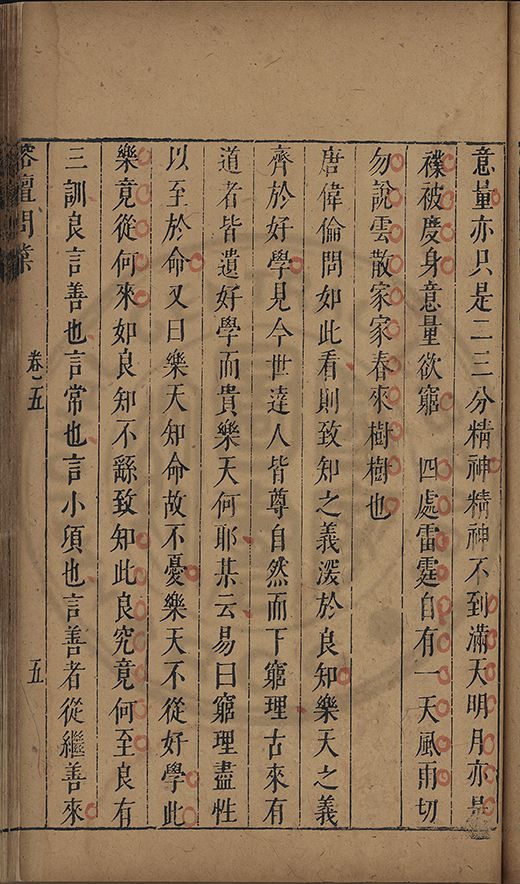 意量亦只是二三分精神精神不到滿天明月亦是
襆被度身意量欲窮　四處雷霆自有一天風雨切
勿說雲散家家春來樹樹也
唐偉倫問如此看則致知之義深於良知樂天之義
齊於好學見今世達人皆尊自然而下窮理古來有
道者皆遺好學而貴樂天何耶某云易曰窮理盡性
以至於命又曰樂天知命故不憂樂天不從好學此
樂竟從何來如良知不繇致知此良究竟何至良有
三訓良言善也言常也言小頃也言善者從繼善來
榕壇問業
卷五
五